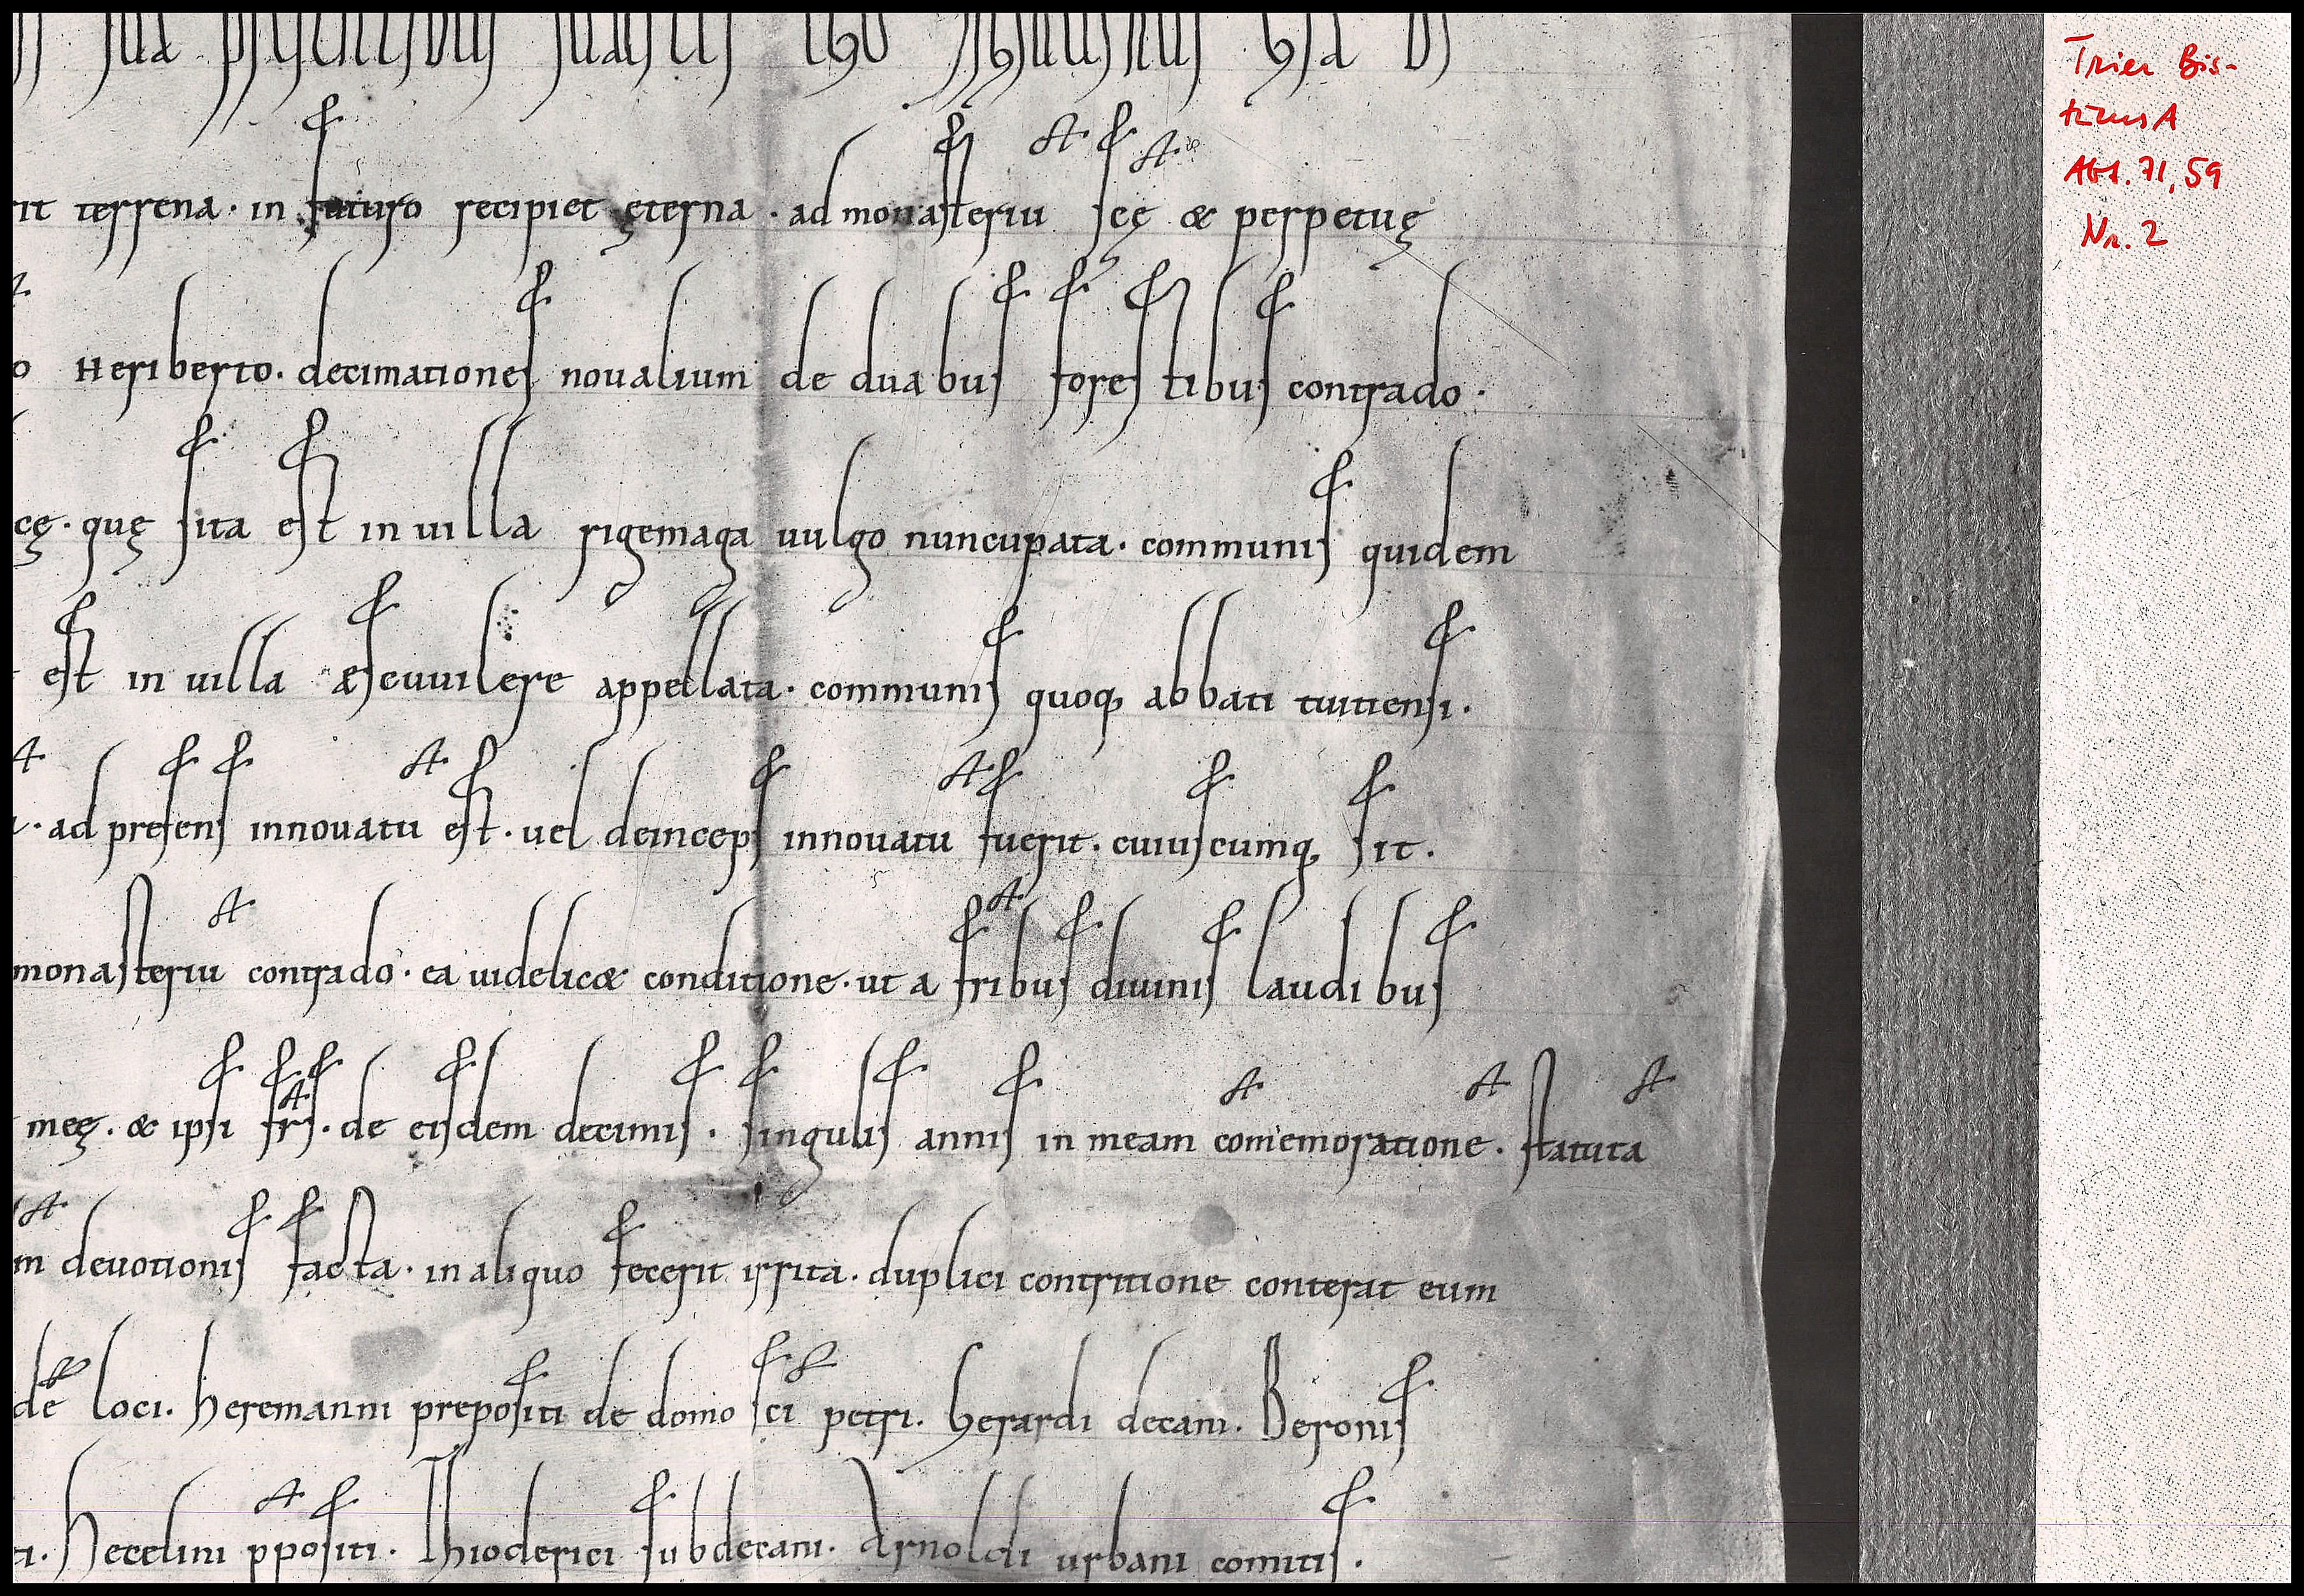 rit terrena · in futuro recipiet ęterna · ad monasteriu scę & perpetuę
o Heriberto · decimationes novalium de duabus forestibus contrado ·
cę · quę sita est in uilla rigemaga uulgo nuncupata · communis quidem
est in uilla æscuuilere appellata · communis quoq, abbati tuitiensi ·
· ad presens innouatu est · uel deinceps innouatu fuerit · cuiuscumq, sit ·
monasteriu contrado · ea uidelicæ conditione · ut a fribus diuinis laudibus
meę · & ipsi frs · de eisdem decimis · singulis annis in meam comemoratione · statuta
m deuotionis facta · in aliquo fecerit irrita · duplici contritione conterat eum
loci · heremanni prepositi de domo sci petri · Gerardi decani · Beronis
· Hecelini ppositi · Thioderici subdecani · Arnoldi urbani comitis ·
Trier Bis-
tumsA
Abt. 71, 59
Nr. 2